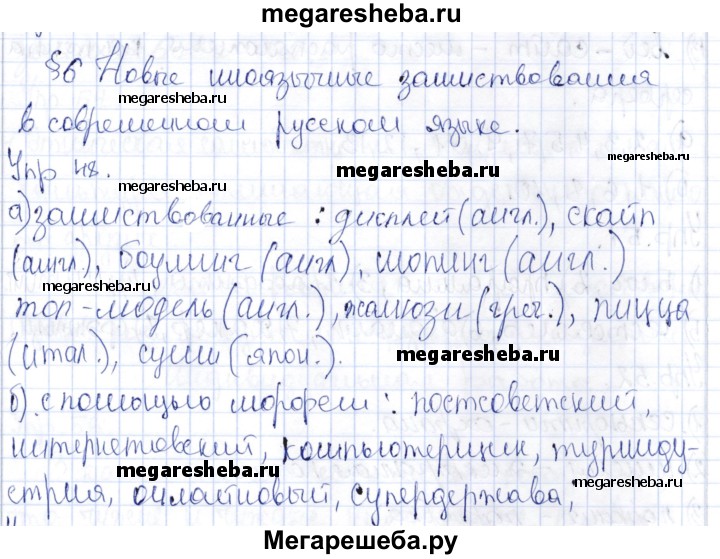 megaresheba.ru
§6 Новые иноязычные заимствования
megaresheba.ru
megaresheba.ru
в современном русском языке.
megaresheba.ru
Упр 48.
megaresheba.ru
а) заимствованные: дисплей (англ.), скайп
(англ.), боулинг (англ), шопинг (англ.)
megaresheba.ru
megaresheba.ru
топ-модель (англ.), жалюзи (греч.), пицца
(итал.), суши (япон.).
megaresheba.ru
б) с помощью морфем: постсоветский,
интернетовский, компьютерщик, туринду-
megaresheba.ru
megaresheba.ru
стрия, онлайновый, супердержава,
Мегарешеба.ру